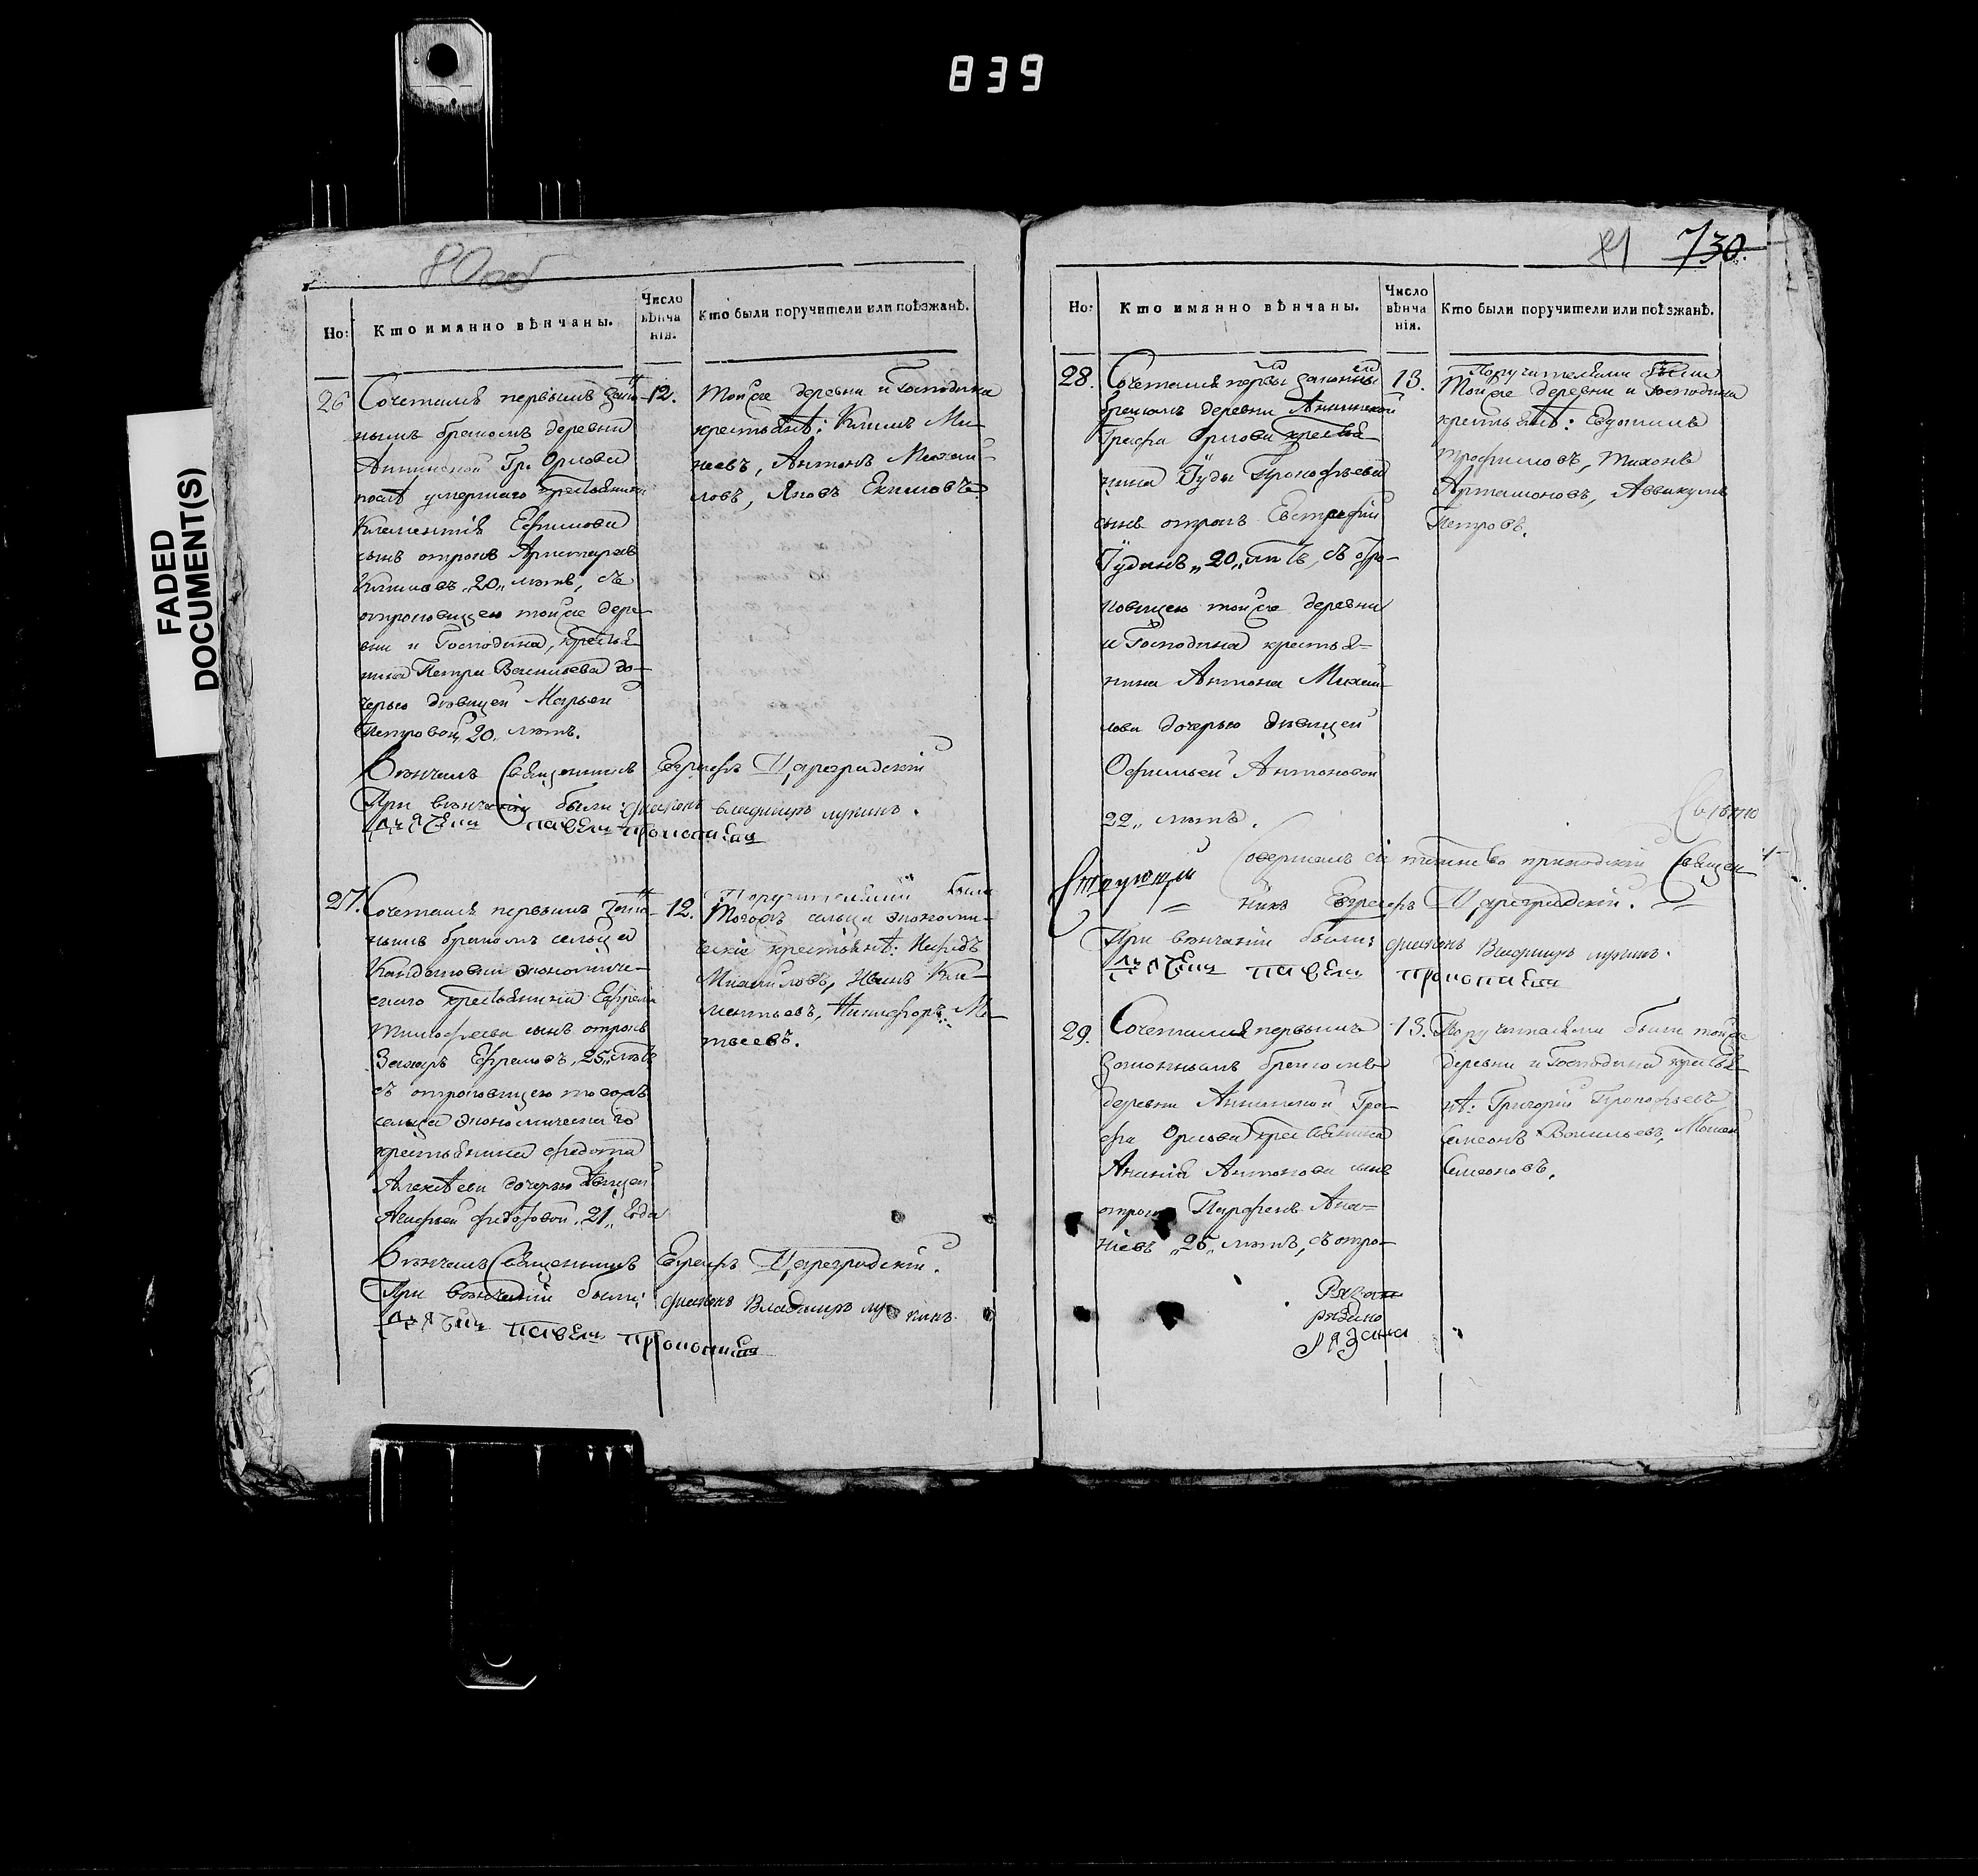 839
FADED
DOCUMENT(S)
80 об
Но:
Кто имянно вѣнчаны.
Число
вѣнча
нія.
Кто были поручители или поѣзжанѣ.
26
Сочетался первымъ закон-
нымъ бракомъ деревни
Аннинской Гр. Орлова
послѣ умершаго крестьянина
Климентія Ефимова
сынъ отрокъ Аристархъ
Климовъ „20„ лѣтъ, съ
отроковицею тойже дере-
вни и Господина, крестья-
нина Петра Васильева до-
черью дѣвицей Марьей
Петровой „20„ лѣтъ.
12.
Тойже деревни и Господина
крестьянѣ: Климъ Ми-
неевъ, Антонъ Михай-
ловъ, Яковъ Екимовъ
Вѣнчалъ Священникъ Евграфъ Цареградскій
При вѣнчаніи были: діаконъ Владимиръ Лукинъ.
Дьячекъ Павелъ Прокопиевъ
27.
Сочетался первымъ закон-
нымъ бракомъ сельца
экономиче-
скаго крестьянина Ефрема
Тимофеева сынъ отрокъ
Захаръ Ефремовъ, 25„ лѣтъ
съ отроковицею тогожъ
сельца экономическаго
крестьянина Федота
Алексѣева дочерью дѣвицей
Федотовой „21„ года
12.
Поручителями были
Тогожъ сельца экономи-
ческіе крестьянѣ:
Михайловъ, Иванъ Кли-
ментьевъ, Никифоръ Ма-
твеевъ.
Вѣнчалъ Священникъ Евграфъ Цареградскій.
При вѣнчаніи были: діаконъ Владимиръ Лукинъ.
Дьячекъ Павелъ Прокопиевъ
81 730.
Но:
Кто имянно вѣнчаны.
Число
вѣнча
нія.
Кто были поручители или поѣзжанѣ.
28.
Сочетался первымъ законнымъ
бракомъ деревни Аннинской
Графа Орлова крестья-
нина Іуды Прокофьева
сынъ отрокъ Евстрафій
Іудинъ „20„ лѣтъ, съ отро-
ковицею тойже деревни
и Господина крестья-
нина Антона Михай-
лова дочерью дѣвицей
Офимьей Антоновой
22„ лѣтъ.
13.
Поручителями были
Тойже деревни и Господина
крестьянѣ: Евдокимъ
Трофимовъ, Тихонъ
Артамоновъ, Аввакумъ
Петровъ.
Совершалъ сіе таинство приходскій Священ-
никъ Евграфъ Цареградскій.
При вѣнчаніи были: діаконъ Владимиръ Лукинъ.
Дьячекъ Павелъ Прокопиевъ
29.
Сочетался первымъ
законнымъ бракомъ
деревни Аннинской Гра-
фа Орлова крестьянина
Ананія Антонова сынъ
отрокъ Парфенъ Ана-
ніевъ „25„ лѣтъ, съ отро-
13.
Поручителями были тойже
деревни и Господина крестья-
нѣ: Григорій Прокофьевъ
Симеонъ Васильевъ,
Симеоновъ.